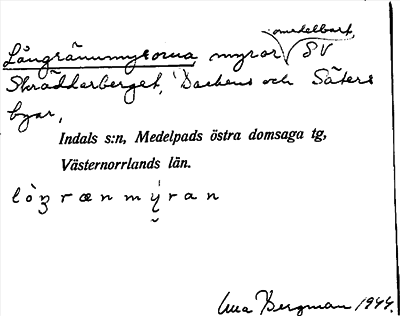 omedelbart
Långrännmyrorna myror SV
Skräddarberget, Dackens och Säters
byar,
Indals s:n, Medelpads östra domsaga tg,
Västernorrlands län.
lòŋrænmýran
Bergman 1944.